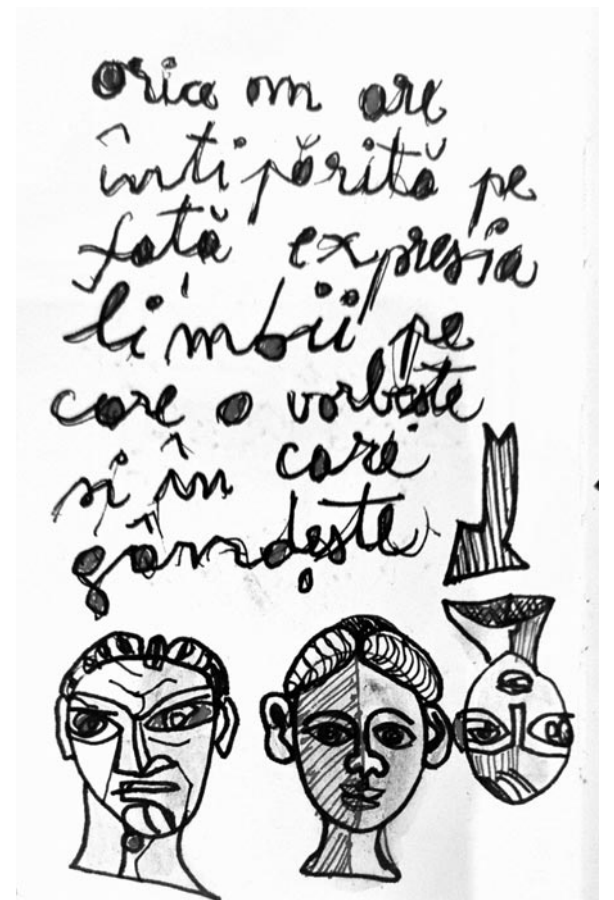 orice om are
întipărită pe
fată expresia
limbii pe
care o vorbește
și în care
gândește